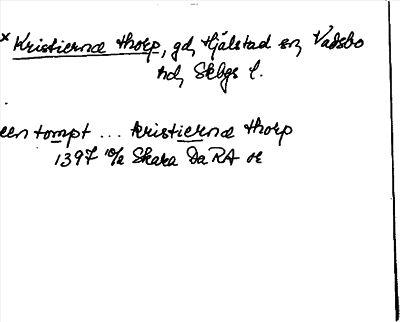 * Kristiernæ thorp, gd, Hjälstad sn, Vadsbo
hd, Skbgs l.
een tompt ... kristiernæ thorp
1397 10/2 Skara Da RA or